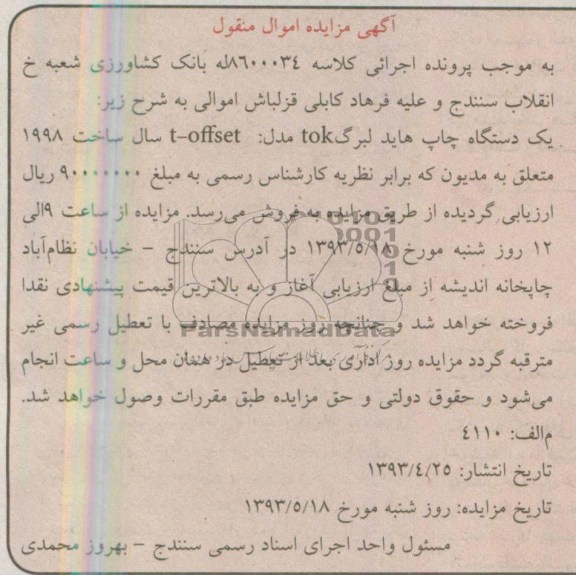 آگهی مزایده اموال منقول
به موجب پرونده اجرائی کلاسه ۸۶۰۰۰۳٤له بانک کشاورزی شعبه خ
انقلاب سنندج و علیه فرهاد کابلی قزلباش اموالی به شرح زیر:
یک دستگاه چاپ هاید لبرگtok مدل: t-offset سال ساخت ۱۹۹۸
متعلق به مدیون که برابر نظریه کارشناس رسمی به مبلغ ۹۰۰۰۰۰۰۰ ریال
ارزیابی گردیده از طریق مزایده به فروش می‌رسد. مزایده از ساعت ۹الی
۱۲ روز شنبه مورخ ۱۳۹۳/٥/۱۸ در آدرس سنندج - خیابان نظام‌آباد
چاپخانه اندیشه از مبلغ ارزیابی آغاز و به بالاترین قیمت پیشنهادی نقدا
فروخته خواهد شد و چنانچه روز مزایده مصادف با تعطیل رسمی غیر
ParsNamadData
مترقبه گردد مزایده روز اداری بعد از تعطیل در همان محل و ساعت انجام
می‌شود و حقوق دولتی و حق مزایده طبق مقررات وصول خواهد شد.
م‌الف: ٤۱۱۰
تاریخ انتشار: ۱۳۹۳/٤/۲٥
تاریخ مزایده: روز شنبه مورخ ۱۳۹۳/٥/۱۸
مسئول واحد اجرای اسناد رسمی سنندج - بهروز محمدی